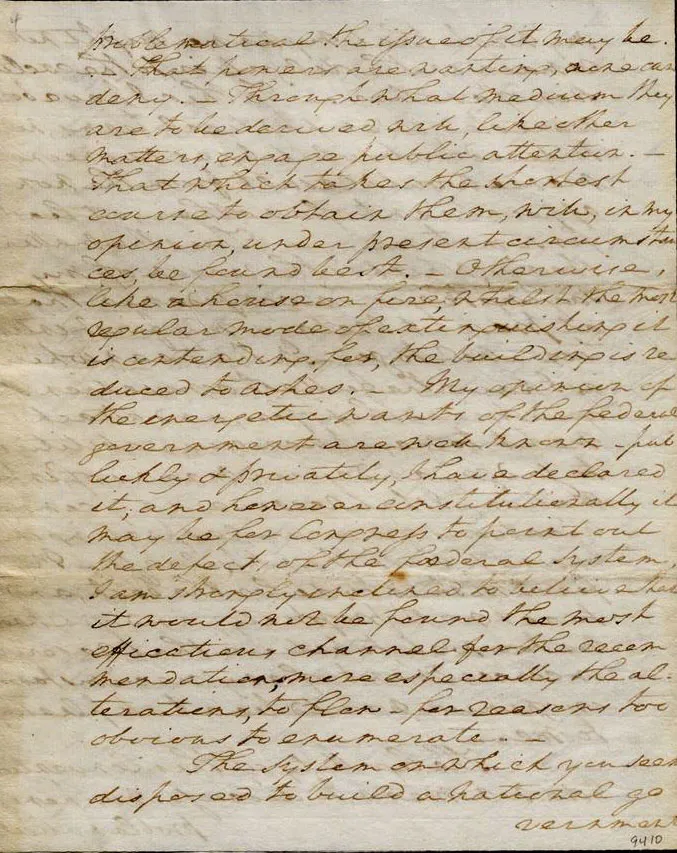 4
problematical the issue of it may be.
- That powers are wanting, none can
deny. - Through what medium they
are to be derived will, like other
matters, engage public attention. -
That which takes the shortest
course to obtain them, will, in my
opinion, under present circumstan
ces, be found best. - Otherwise,
like a house on fire, whilst the most
regular mode of extinguishing it
is contending for, the building is re
duced to ashes. - My opinion of
the energetic wants of the federal
government are well known - pub
lickly & privately, I have declared
it; and however constitutionally it
may be for Congress to point out
the defects of the foederal System,
I am strongly inclined to believe that
it would not be found the most
efficatious channel for the recom
mendation, more especially the al-
terations, to flow - for reasons too
obvious to enumerate. -
The System on which you seem
disposed to build a national go
vernment
9410